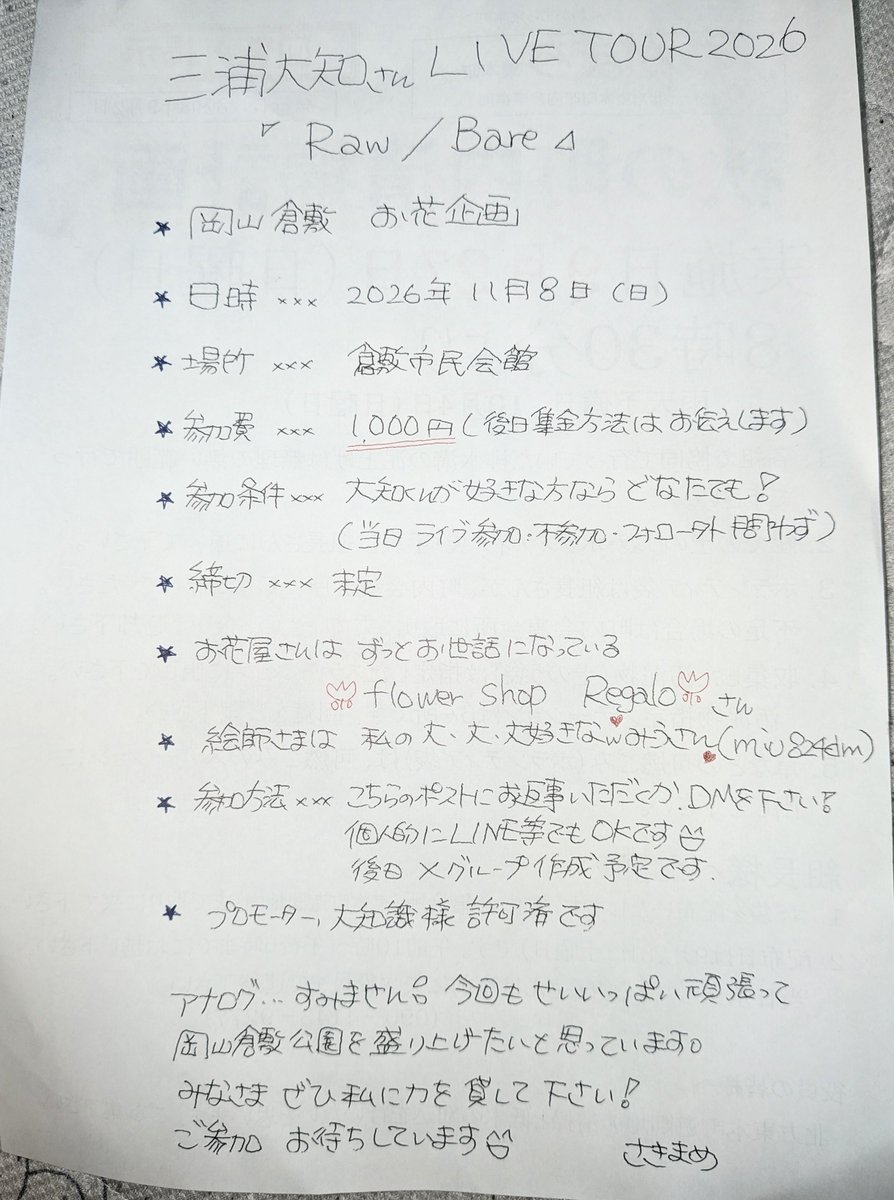 三浦大知さん LIVE TOUR 2026
『 Raw / Bare 』
★ 岡山倉敷 お花企画
★ 日時 ××× 2026年 11月8日(日)
★ 場所 ××× 倉敷市民会館
★ 参加費 ××× 1,000円(後日集金方法はお伝えします)
★ 参加条件××× 大知くんが好きな方なら どなたでも!
(当日 ライブ参加・不参加・フォロー外 問わず)
★ 締切 ××× 未定
★ お花屋さんは ずっとお世話になっている
flower shop Regalo さん
★ 絵師さまは 私の大、大、大好きなwみうさん(miu824dm)
★ 参加方法××× こちらのポストにお返事いただくか、DMを下さい!
個人的にLINE等でもOKです
後日 Xグループ作成予定です.
★ プロモーター, 大知識様 許可済です
アナログ… すみません 今回も せいいっぱい頑張って
岡山倉敷公園を盛り上げたいと思っています。
みなさま ぜひ私に力を貸して下さい!
ご参加 お待ちしています
さきまめ